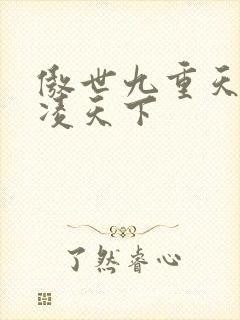 傲世九重天
凌天下
了然睿心